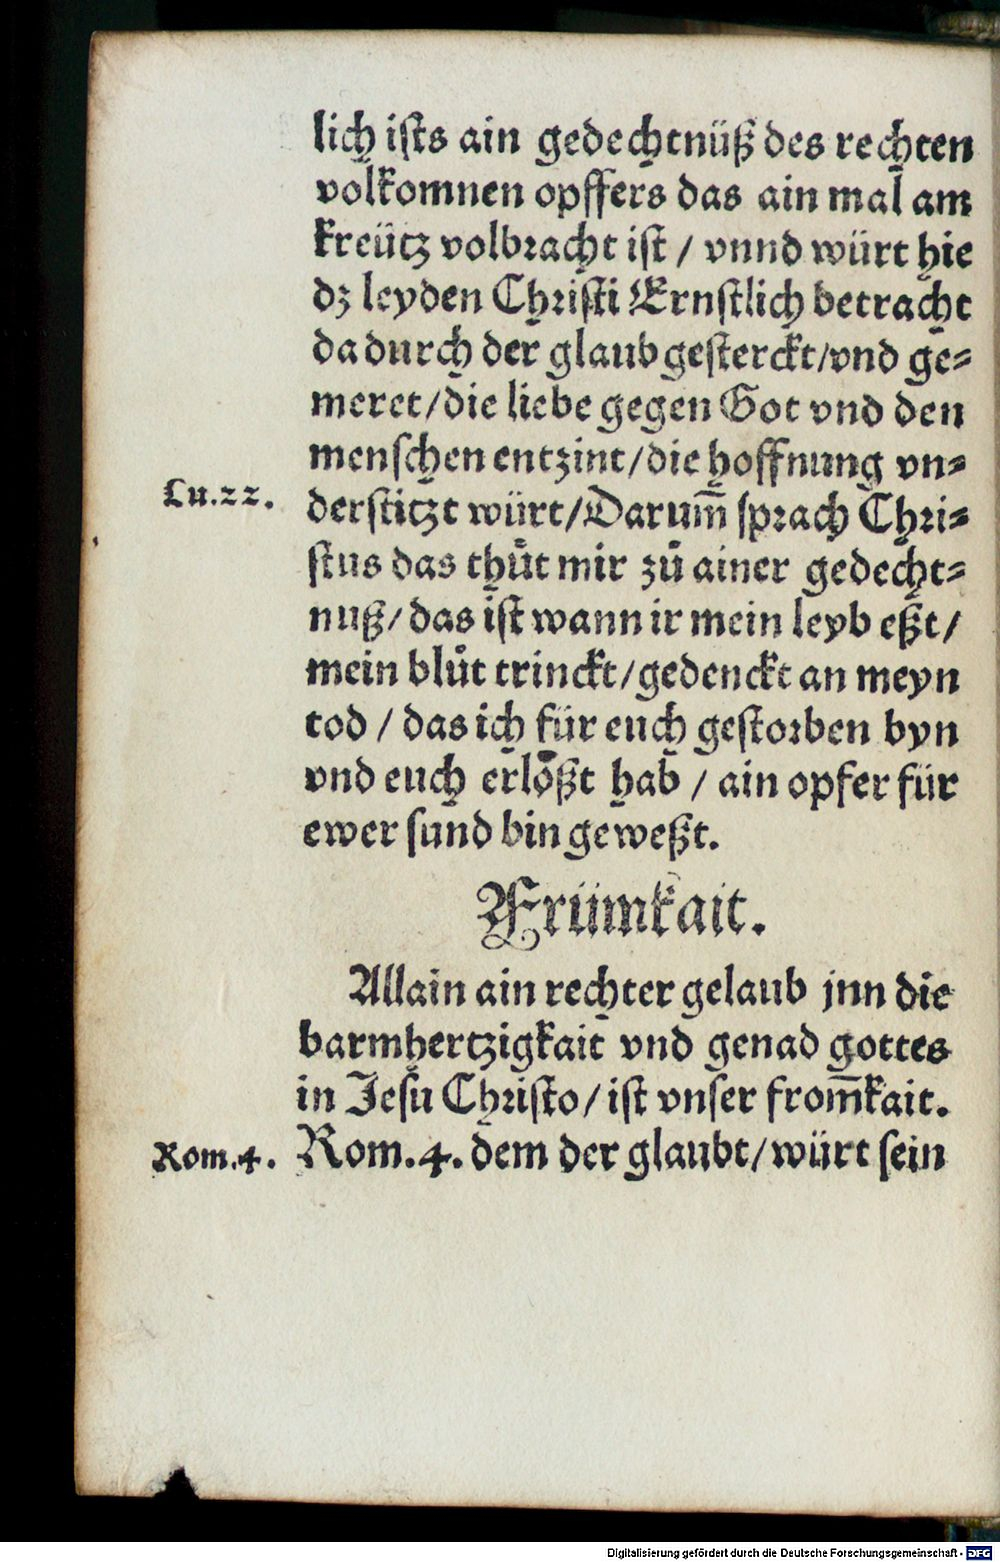 lich ists ain gedechtnüß des rechten
volkomnen opffers das ain mal am
kreütz volbracht ist / vnnd würt hie
dz leyden Christi Ernstlich betracht
da durch der glaub gesterckt/vnd ge⸗
meret/die liebe gegen Got vnd den
menschen entzint/die hoffnung vn⸗
Lu.22. derstitzt würt/Darum̄ sprach Chri⸗
stus das thůt mir zů ainer gedecht⸗
nuß/das ist wann ir mein leyb eßt/
mein blůt trinckt/gedenckt an meyn
tod / das ich für euch gestorben byn
vnd euch erlößt hab / ain opfer für
ewer sund bin geweßt.
Frümkait.
Allain ain rechter gelaub jnn die
barmhertzigkait vnd genad gottes
in Jesu Christo/ist vnser from̄kait.
Rom.4. Rom.4. dem der glaubt/würt sein
Digitalisierung gefördert durch die Deutsche Forschungsgemeinschaft - DFG